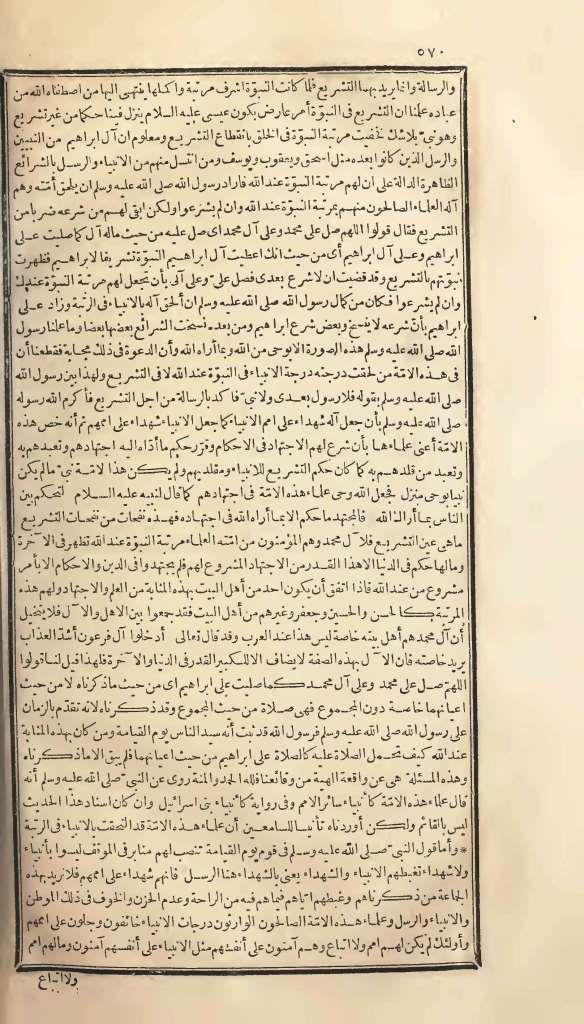 ٥٧٠
والرسالة وانما يريد بهما التشريع فلما كانت النبوّة اشرف مرتبة وأكملها ينتهى اليها من اصطفاه الله من
عباده علمنا ان التشريع فى النبوّة أمر عارض بكون عيسى عليه السلام ينزل فينا حكما من غير تشريع
وهو نبىّ بلا شك فخفيت مرتبة النبوّة فى الخلق بانقطاع التشريع ومعلوم ان آل ابراهيم من النبيين
والرسل الذين كانوا بعده مثل اسحق ويعقوب ويوسف ومن انتسل منهم من الانبياء والرسل بالشرائع
الظاهرة الدالة على ان لهم مرتبة النبوّة عند الله فأراد رسول الله صلى الله عليه وسلم ان يلحق أمّته وهم
آله العلماء الصالحون منهم بمرتبة النبوّة عند الله وان لم يشرعوا ولكن ابقى لهم من شرعه ضربا من
التشريع فقال قولوا اللهم صل على محمد وعلى آل محمد اى صل عليه من حيث ماله آل كما صليت على
ابراهيم وعلى آل ابراهيم أى من حيث انك اعطيت آل ابراهيم النبوّة تشريفا لابراهيم فظهرت
نبوّتهم بالتشريع وقد قضيت ان لا شرع بعدى فصل علىّ وعلى آلى بأن تجعل لهم مرتبة النبوّة عندك
وان لم يشرعوا فكان من كمال رسول الله صلى الله عليه وسلم ان ألحق آله بالانبياء فى الرتبة وزاد على
ابراهيم بأنّ شرعه لا ينسخ وبعض شرع ابراهيم ومن بعده نسخت الشرائع بعضها بعضا وما علمنا رسول
الله صلى الله عليه وسلم هذه الصورة الا بوحى من الله وبما أراه الله وأن الدعوة فى ذلك مجابة فقطعنا أن
فى هذه الامّة من لحقت درجته درجة الانبياء فى النبوّة عند الله لا فى التشريع ولهذا بين رسول الله
صلى الله عليه وسلم بقوله فلا رسول بعدى ولا نبىّ فأكد بالرسالة من اجل التشريع فأكرم الله رسوله
صلى الله عليه وسلم بأن جعل آله شهداء على امم الانبياء كما جعل الانبياء شهداء على اممهم ثم أنه خص هذه
الامّة أعنى علماءها بأن شرع لهم الاجتهاد فى الاحكام وقرّر حكم ما أدّاه اليه اجتهادهم وتعبدهم به
وتعبد من قلدهم به كما كان حكم التشريع للانبياء ومقلديهم ولم يكن هذا لامّة نبىّ ما لم يكن
نبيا بوحى منزل فجعل الله وحى علماء هذه الامّة فى اجتهادهم كما قال لنبيه عليه السلام لتحكم بين
الناس بما أراك الله فالمجتهد ما حكم الا بما أراه الله فى اجتهاده فهذه نفحات من نفحات التشريع
ما هى عين التشريع فلآل محمد وهم المؤمنون من امّته العلماء مرتبة النبوّة عند الله تظهر فى الآخرة
وما لها حكم فى الدنيا الا هذا القدر من الاجتهاد المشروع لهم فلم يجتهدوا فى الدين والاحكام الا بأمر
مشروع من عند الله فاذا اتفق أن يكون احد من أهل البيت بهذه المثابة من العلم والاجتهاد ولهم هذه
المرتبة كالحسن والحسين وجعفر وغيرهم من أهل البيت فقد جمعوا بين الاهل والآل فلا يتخيل
أن آل محمد هم أهل بيته خاصة ليس هذا عند العرب وقد قال تعالى أدخلوا آل فرعون أشدّ العذاب
يريد خاصته فان الآل بهذه الصفة لا يضاف الا للكبير القدر فى الدنيا والآخرة فلهذا قيل لنا قولوا
اللهمّ صل على محمد وعلى آل محمد كما صليت على ابراهيم اى من حيث ما ذكرناه لا من حيث
اعيانهما خاصة دون المجموع فهى صلاة من حيث المجموع وقد ذكرناه لانه تقدّم بالزمان
على رسول الله صلى الله عليه وسلم فرسول الله قد ثبت أنه سيد الناس يوم القيامة ومن كان بهذه المثابة
عند الله كيف تحمل الصلاة عليه كالصلاة على ابراهيم من حيث اعيانهما فلم يبق الا ما ذكرناه
وهذه المسئلة هى عن واقعة الهية من وقائعنا فلله الحمد والمنة روى عن النبى صلى الله عليه وسلم أنه
قال علماء هذه الامّة كأنبياء سائر الامم وفى رواية كأنبياء بنى اسرائيل وان كان اسناد هذا الحديث
ليس بالقائم ولكن أوردناه تأنيسا للسامعين أن علماء هذه الامّة قد التحقت بالانبياء فى الرتبة
* وأما قول النبى صلى الله عليه وسلم فى قوم يوم القيامة تنصب لهم منابر فى الموقف ليسوا بأنبياء
ولا شهداء تغبطهم الانبياء والشهداء يعنى بالشهداء هنا الرسل فانهم شهداء على اممهم فلا نريد بهذه
الجماعة من ذكرناهم وغبطهم اياهم فيما هم فيه من الراحة وعدم الحزن والخوف فى ذلك الموطن
والانبياء والرسل وعلماء هذه الامّة الصالحون الوارثون درجات الانبياء خائفون وجلون على اممهم
وأولئك لم يكن لهم امم ولا اتباع وهم آمنون على أنفسهم مثل الانبياء على أنفسهم آمنون وما لهم امم
ولا اتباع